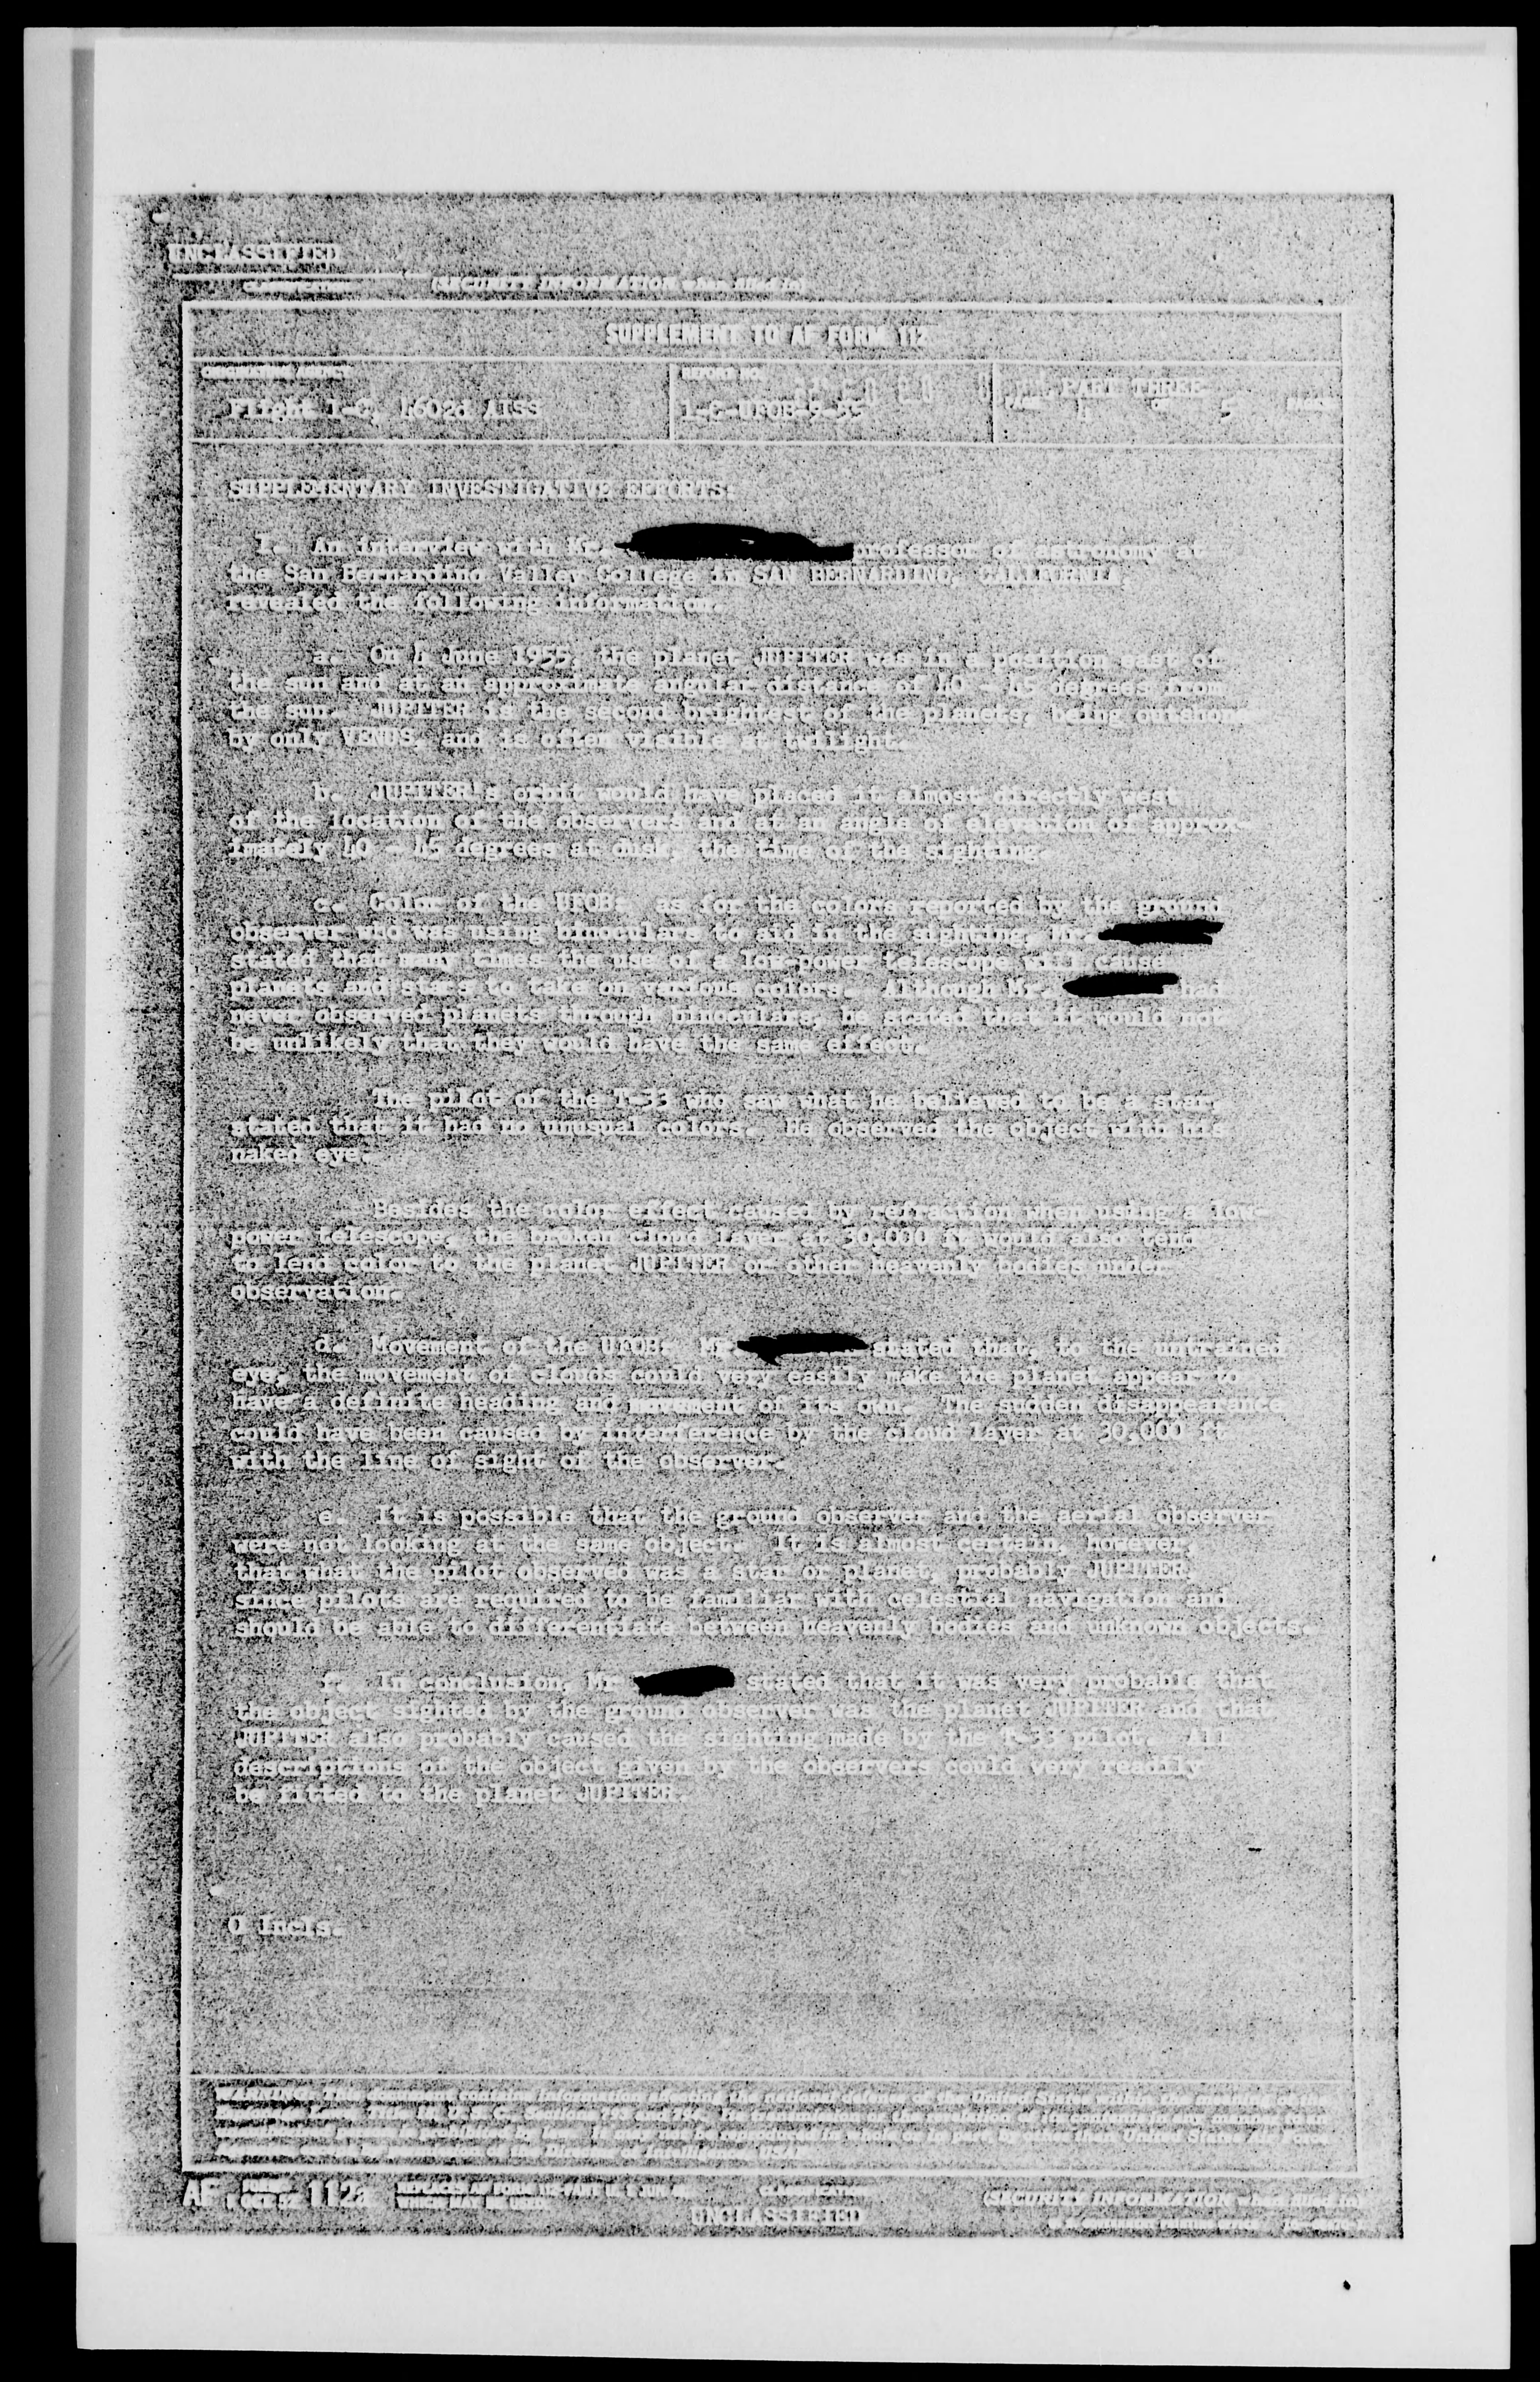 UNCLASSIFIED
(SECURITY INFORMATION when filled in)
SUPPLEMENT TO AF FORM 112
ORIGINATING AGENCY
REPORT NO.
PART THREE
Flight 1-C, 4602d AISS
1-C-UFOB-9-55
4 5
SUPPLEMENTARY INVESTIGATIVE EFFORTS:
1. An interview with Mr. professor of astronomy at
the San Bernardino Valley College in SAN BERNARDINO, CALIFORNIA,
revealed the following information.
a. On 4 June 1955, the planet JUPITER was in a position east of
the sun and at an approximate angular distance of 40 - 45 degrees from
the sun. JUPITER is the second brightest of the planets, being outshone
by only VENUS, and is often visible at twilight.
b. JUPITER's orbit would have placed it almost directly west
of the location of the observers and at an angle of elevation of approx-
imately 40 - 45 degrees at dusk, the time of the sighting.
c. Color of the UFOB: as for the colors reported by the ground
observer who was using binoculars to aid in the sighting, Mr.
stated that many times the use of a low-power telescope will cause
planets and stars to take on various colors. Although Mr. had
never observed planets through binoculars, he stated that it would not
be unlikely that they would have the same effect.
The pilot of the T-33 who saw what he believed to be a star,
stated that it had no unusual colors. He observed the object with his
naked eye.
Besides the color effect caused by refraction when using a low-
power telescope, the broken cloud layer at 30,000 ft would also tend
to lend color to the planet JUPITER or other heavenly bodies under
observation.
d. Movement of the UFOB: Mr. stated that, to the untrained
eye, the movement of clouds could very easily make the planet appear to
have a definite heading and movement of its own. The sudden disappearance
could have been caused by interference by the cloud layer at 30,000 ft
with the line of sight of the observer.
e. It is possible that the ground observer and the aerial observer
were not looking at the same object. It is almost certain, however,
that what the pilot observed was a star or planet, probably JUPITER,
since pilots are required to be familiar with celestial navigation and
should be able to differentiate between heavenly bodies and unknown objects.
f. In conclusion, Mr. stated that it was very probable that
the object sighted by the ground observer was the planet JUPITER and that
JUPITER also probably caused the sighting made by the T-33 pilot. All
descriptions of the object given by the observers could very readily
be fitted to the planet JUPITER.
0 Incls.
WARNING: This document contains information affecting the national defense of the United States within the meaning of the
AF FORM 112a
UNCLASSIFIED
(SECURITY INFORMATION when filled in)